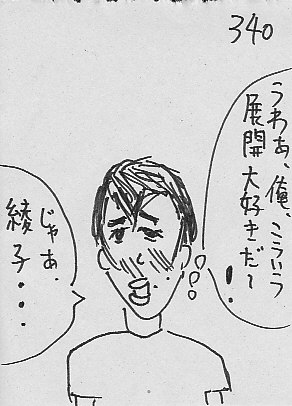 340
うわぁ、俺、こういう
展開大好きだ〜!
じゃあ、
綾子・・・